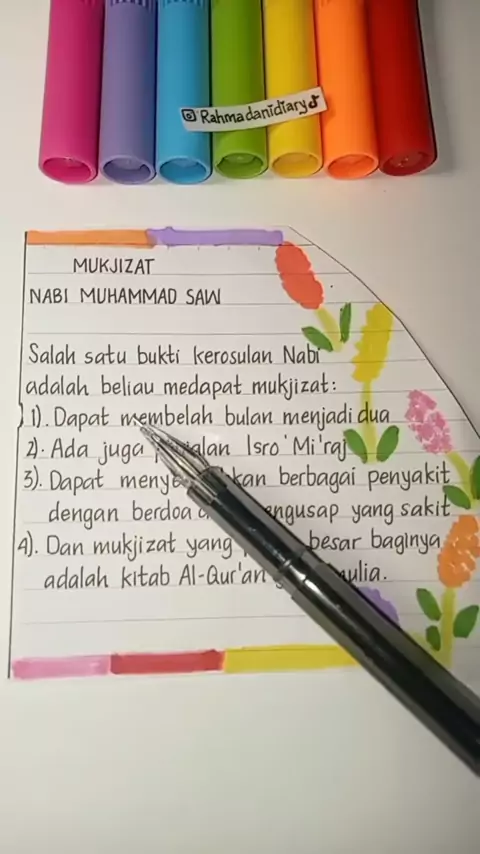 Rahmadanidiary
MUKJIZAT
NABI MUHAMMAD SAW
Salah satu bukti kerosulan Nabi
adalah beliau medapat mukjizat:
1). Dapat membelah bulan menjadi dua
2). Ada juga Isro' Mi'raj
3). Dapat berbagai penyakit
dengan berdoa yang sakit
4). Dan mukjizat yang besar baginya
adalah kitab Al-Qur'an